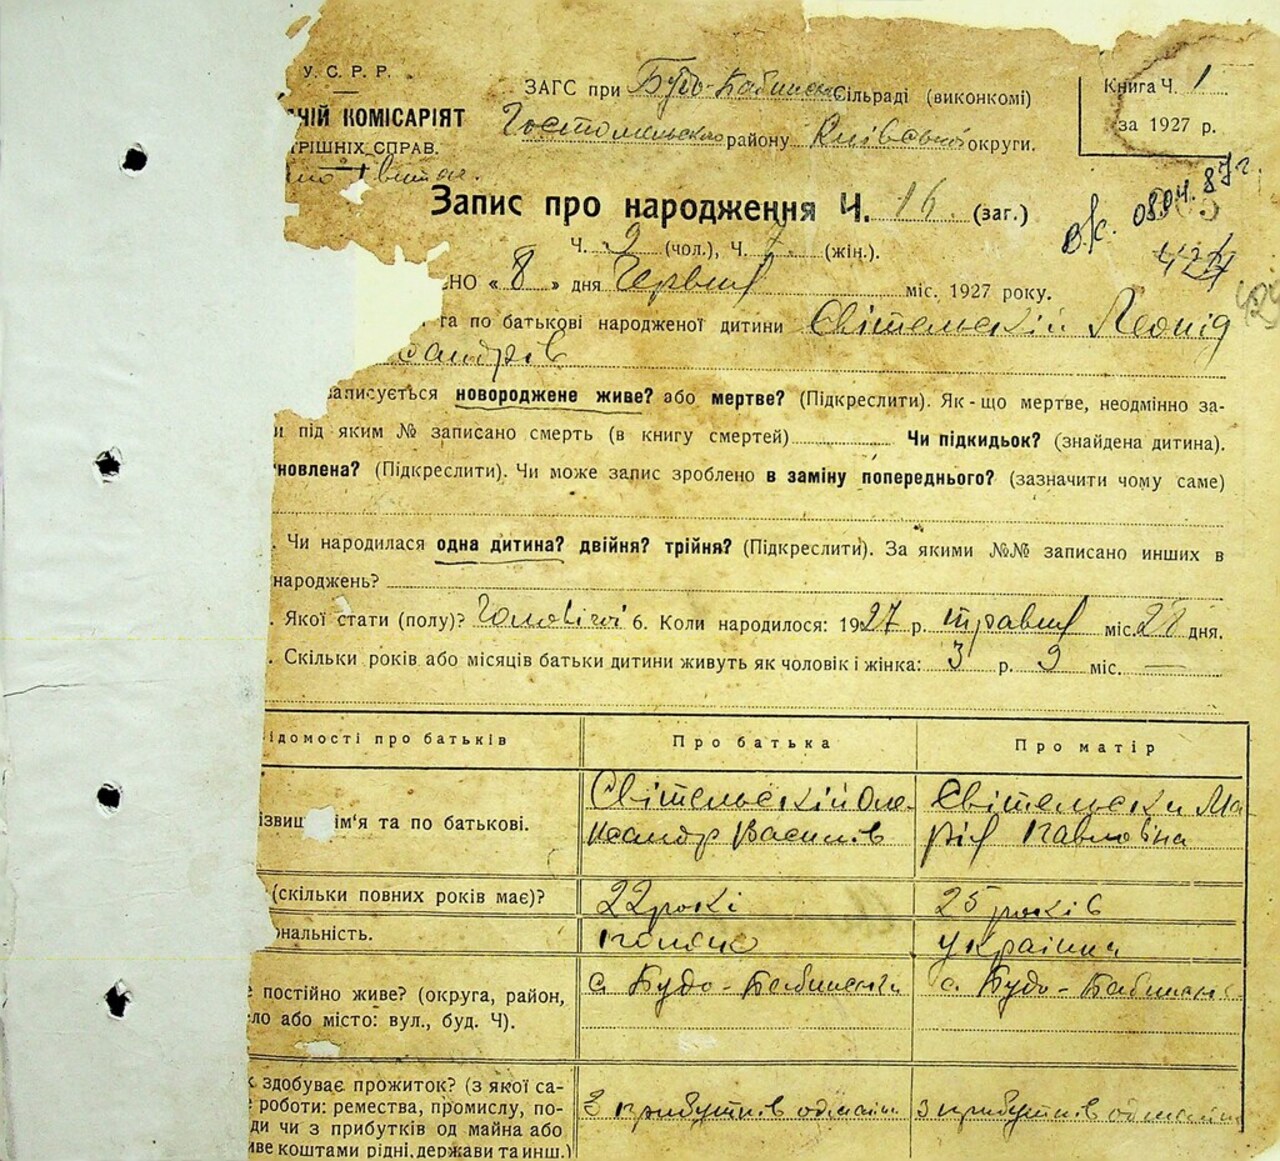 У. С. Р. Р.
ЗАГС при Будо-Бабинськ Сільраді (виконкомі)
Книга Ч. 1
НІЙ КОМІСАРІЯТ
Гостомельського району Київської округи.
за 1927 р.
ТРІШНІХ СПРАВ.
Запис про народження Ч. 16 (заг.)
вх. 0804. 87г.
Ч. 9 (чол.), Ч. 7 (жін.).
424
НО « 8 » дня Червня міс. 1927 року.
та по батькові народженої дитини Світельскій Леонід
сандрів
аписується новороджене живе? або мертве? (Підкреслити). Як-що мертве, неодмінно за-
и під яким № записано смерть (в книгу смертей) Чи підкидьок? (знайдена дитина).
новлена? (Підкреслити). Чи може запис зроблено в заміну попереднього? (зазначити чому саме)
. Чи народилася одна дитина? двійня? трійня? (Підкреслити). За якими №№ записано инших в
народжень?
. Якої стати (полу)? Чоловічої 6. Коли народилося: 1927 р. травня міс. 28 дня.
. Скільки років або місяців батьки дитини живуть як чоловік і жінка: 3 р. 9 міс. —
ідомості про батьків
Про батька
Про матір
ізвищ ім'я та по батькові.
Світельскій Оле-
ксандр Василів
Світельска Ма
рія Павловна
(скільки повних років має)?
22 рокі
25 років
ональність.
поляк
українка
е постійно живе? (округа, район,
ло або місто: вул., буд. Ч).
с. Будо-Бабинськи
с. Будо-Бабинські
к здобуває прожиток? (з якої са-
роботи: ремества, промислу, по-
ди чи з прибутків од майна або
иве коштами рідні, держави та инш.)
З прибутків од майн
з прибутків од майн